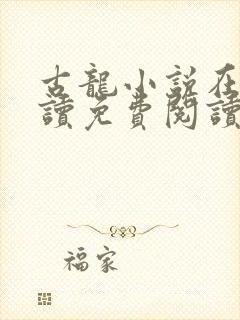 古龍小說在
讀免費閱讀
福家